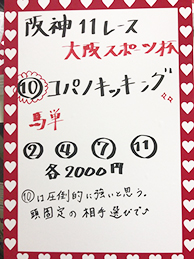 阪神11レース
大阪スポーツ杯
⑩コパノキッキング
馬単
② ④ ⑦ ⑪
各2000円
⑩は圧倒的に強いと思う。
頭固定の相手選びで♪